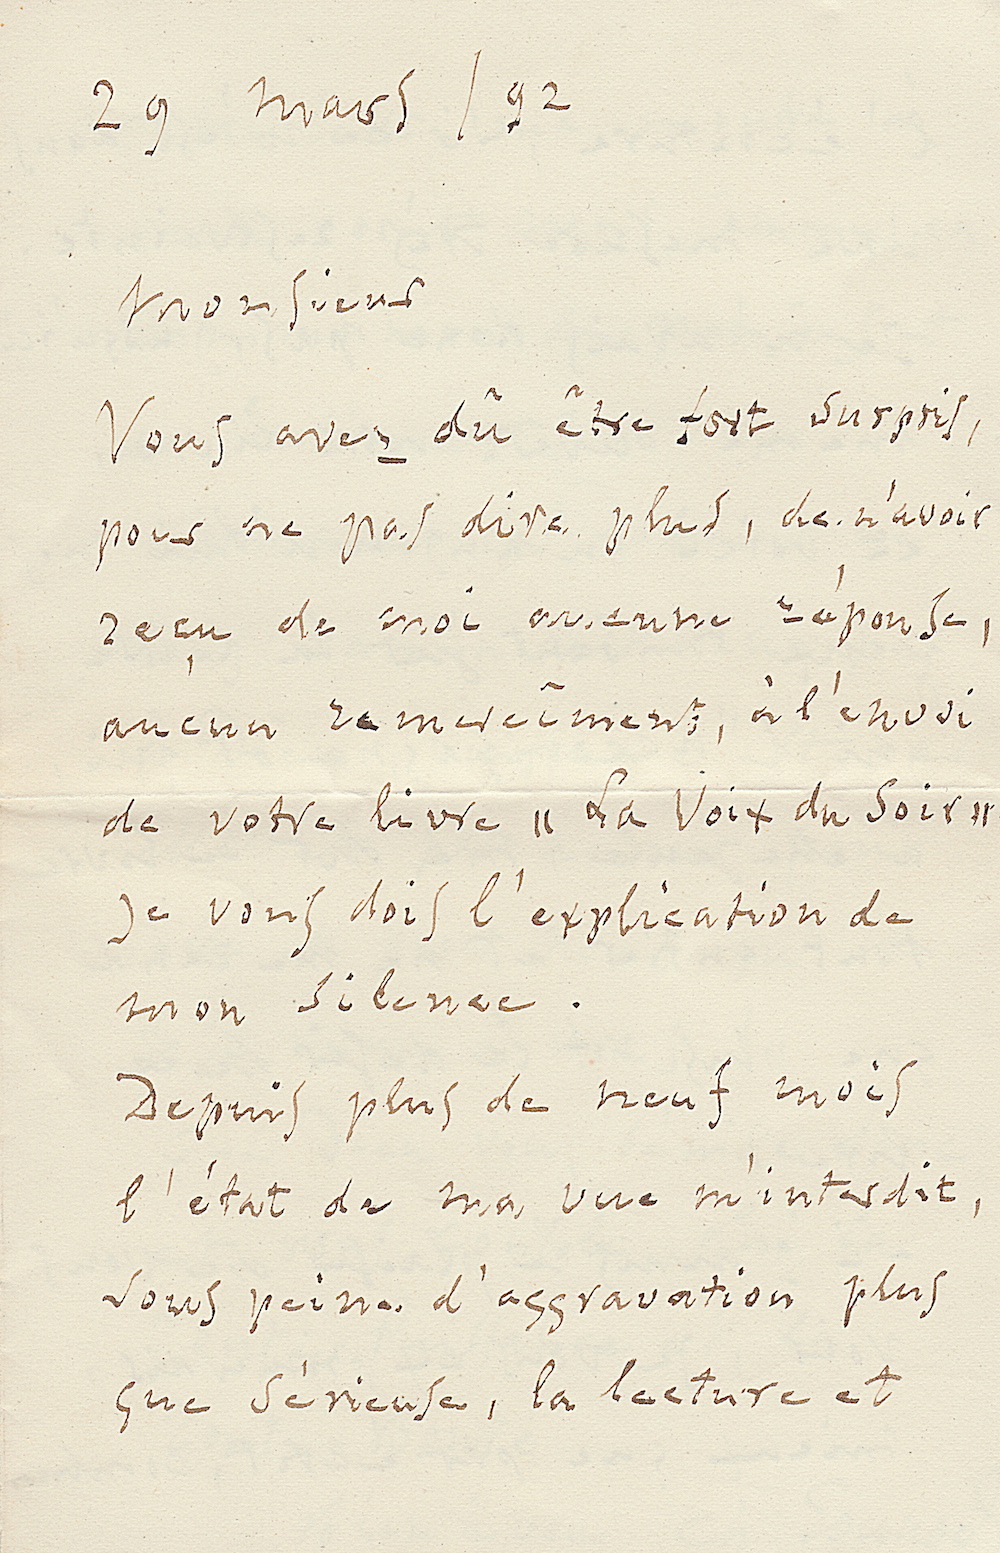 29 Mars / 92
Monsieur
Vous avez dû être fort surpris,
pour ne pas dire plus, de n'avoir
reçu de moi aucune réponse,
aucun remercîment, à l'envoi
de votre livre " La Voix du Soir "
Je vous dois l'explication de
mon silence .
Depuis plus de neuf mois
l'état de ma vue m'interdit,
sous peine d'aggravation plus
que sérieuse, la lecture et